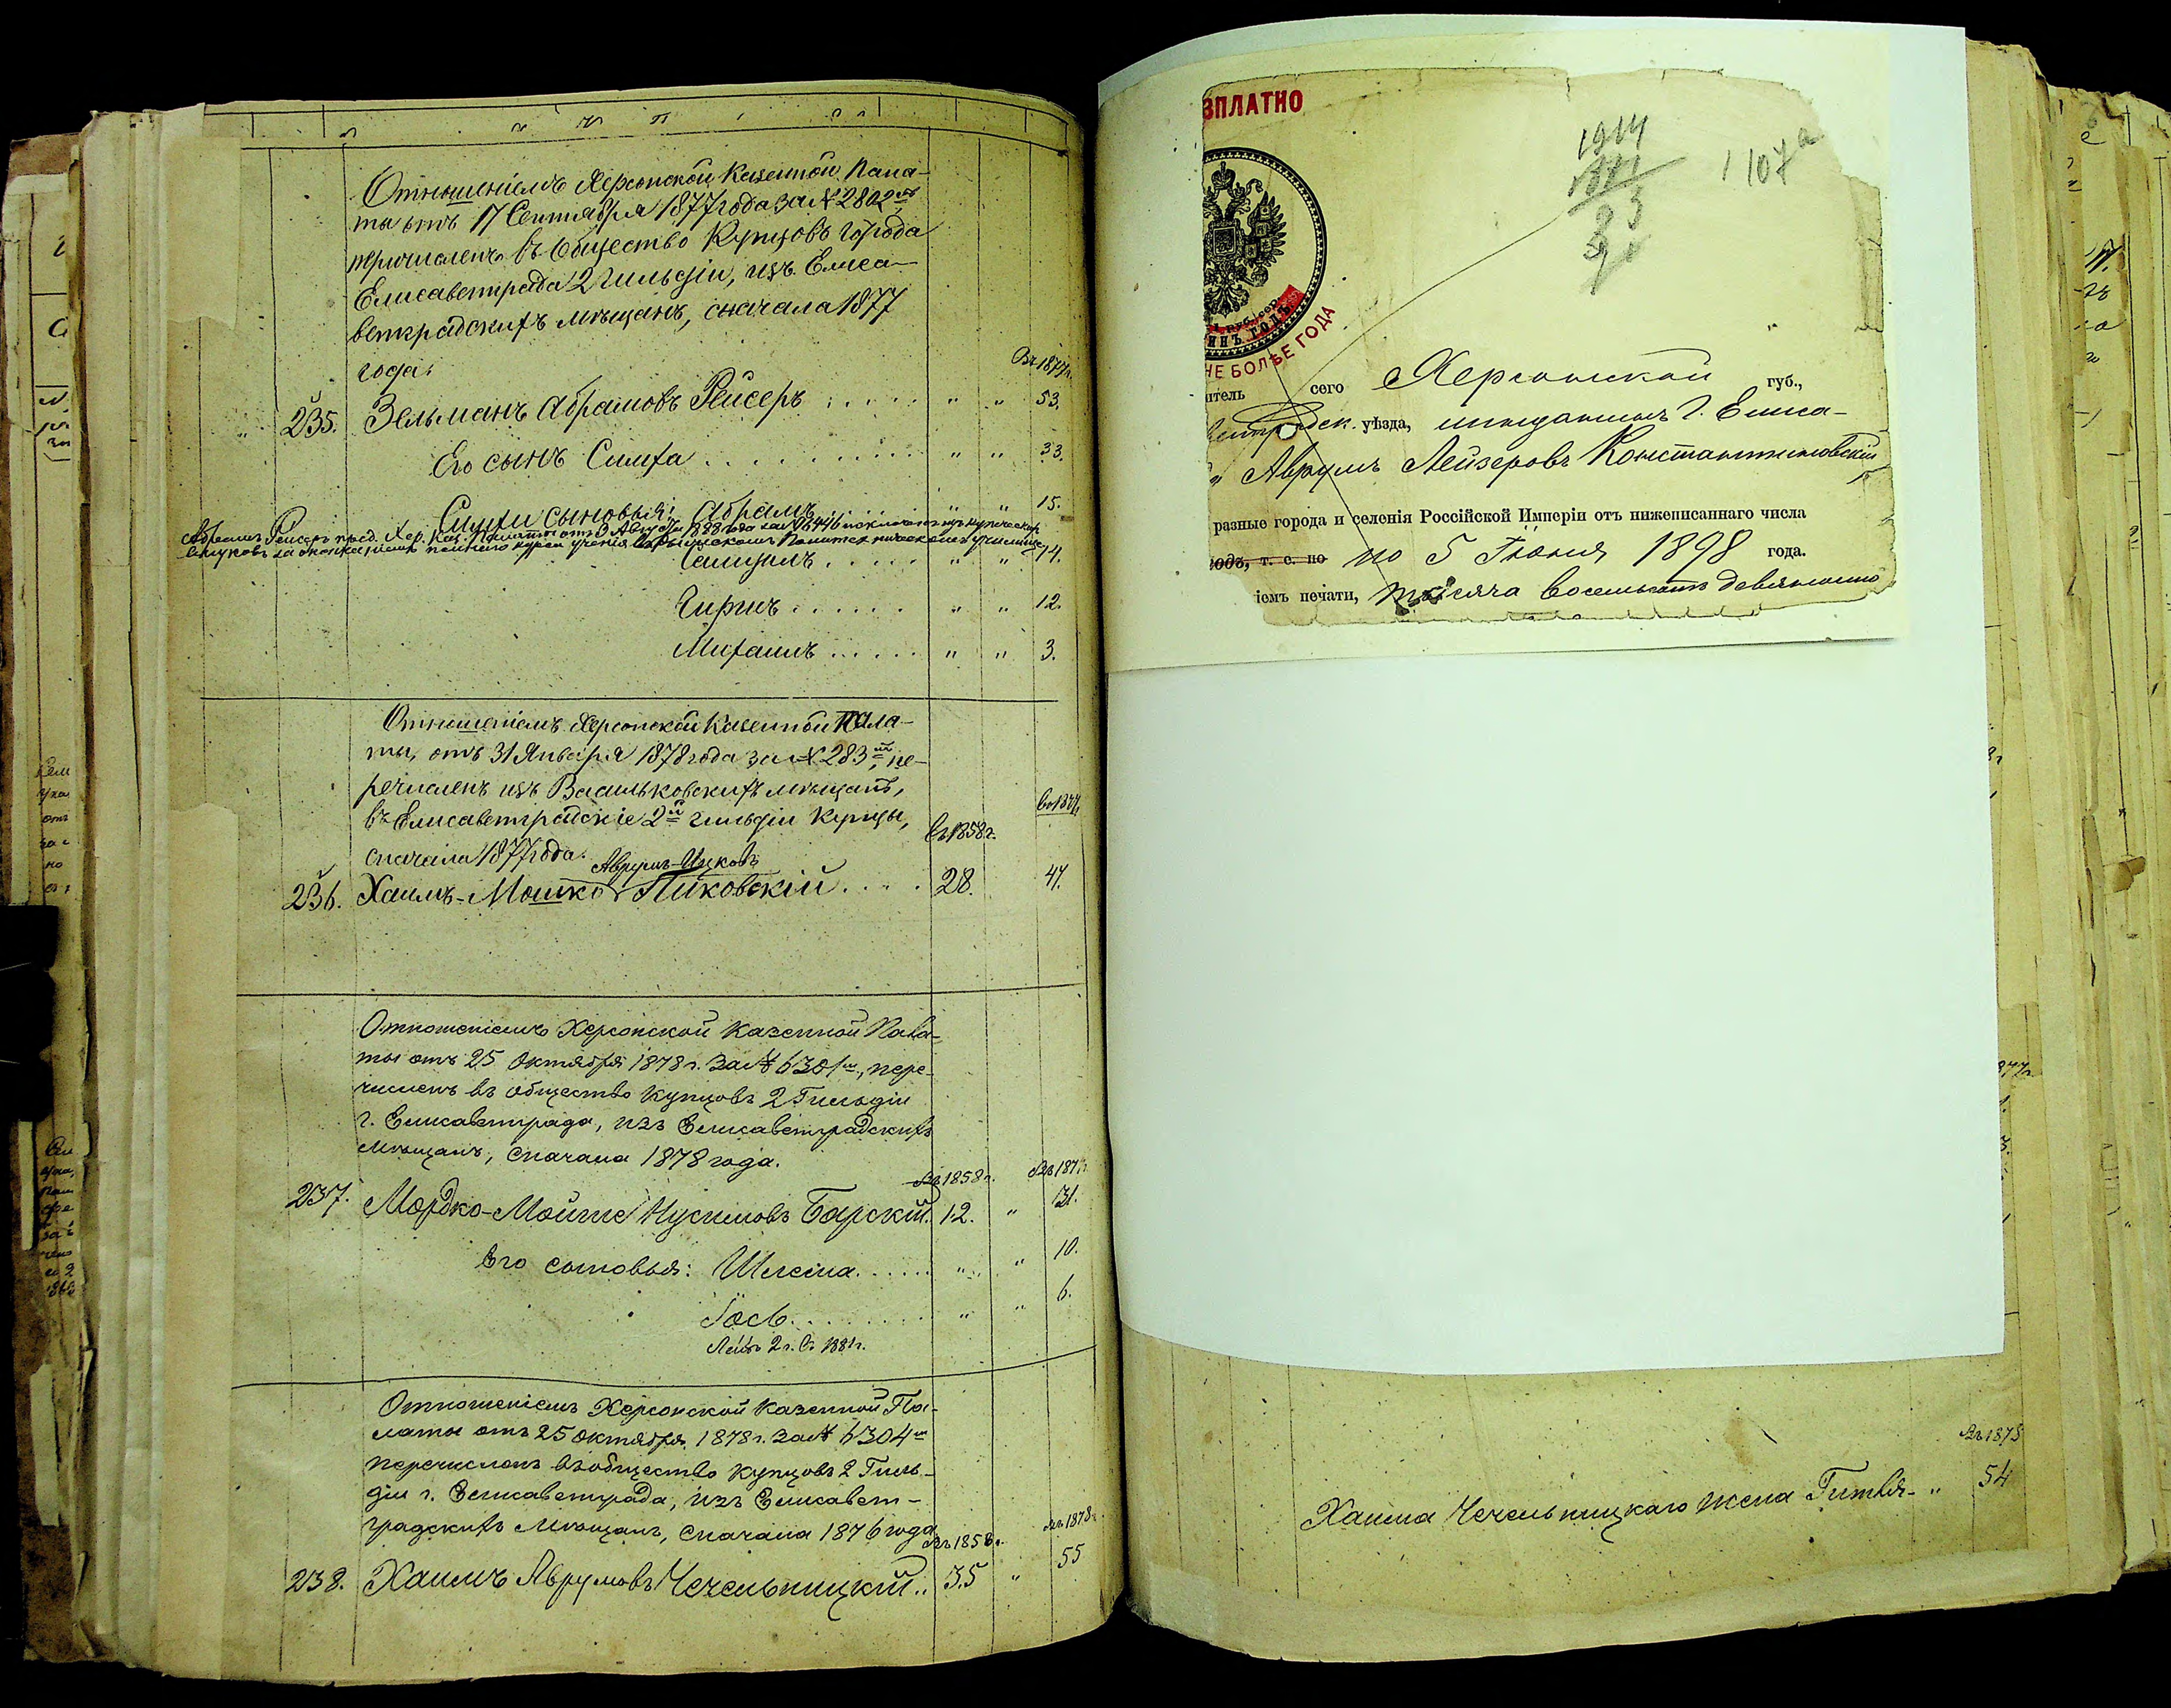 Отношеніемъ Херсонской Казенной Пала-
ты отъ 17 Сентября 1877 года за № 2802мъ
причисленъ въ Общество Купцовъ города
Елисаветграда 2 гильдіи, изъ Елиса-
ветградскихъ мѣщанъ, сначала 1877
года.
Въ 1877 г.
235. Зельманъ Абрамовъ Рейсеръ . . . . " " 53.
Его сынъ Симха . . . . . . . . " " 33.
Симхи сыновья: Абрамъ . . . . . " " 15.
Абрамъ Рейсеръ пред. Хер. Каз. Палаты отъ Августа 1898 года за № исключенъ изъ купеческихъ
списковъ за окончаніемъ полнаго курса ученія въ Рижскомъ Политехническомъ училищѣ
Самуилъ . . . . . " " 14.
Гиршъ . . . . . . " " 12.
Михаилъ . . . . . " " 3.
Отношеніемъ Херсонской Казенной Пала-
ты, отъ 31 Января 1878 года за № 283мъ, пе-
речисленъ изъ Васильковскихъ мѣщанъ,
въ Елисаветградскіе 2й гильдіи купцы,
сначала 1877 года.
Въ 1858 г.
Аврумъ-Ицковъ
236. Хаимъ-Мошко Пиковскій . . . . 28. 47.
Отношеніемъ Херсонской Казенной Пала-
ты отъ 25 Октября 1878 г. за № 6301мъ, пере-
численъ въ общество купцовъ 2 Гильдіи
г. Елисаветграда, изъ Елисаветградскихъ
мѣщанъ, сначала 1878 года.
Въ 1858 г.
237. Мордко-Мойше Нусимовъ Барскій. 12. " 31.
Его сыновья: Шлема. . . . . . " " 10.
Іось . . . . . . . . " " 6.
2 г. въ 1881 г.
Отношеніемъ Херсонской Казенной Па-
латы отъ 25 Октября 1878 г. за № 6304мъ
перечисленъ въ общество купцовъ 2 Гиль-
діи г. Елисаветграда, изъ Елисавет-
градскихъ мѣщанъ, сначала 1876 года
Въ 1858 г. Въ 1878 г.
238. Хаимъ Аврумовъ Чечельницкій . . 35 " 55
ЗПЛАТНО
1914
1107а
ИНЪ ГОДЪ
НЕ БОЛѢЕ ГОДА
итель сего Херсонской губ.,
уѣзда, мѣщанинъ г. Елиса-
Аврумъ Лейзеровъ Константиновскій
разные города и селенія Россійской Имперіи отъ нижеписаннаго числа
одъ, т. е. по по 5 Іюня 1898 года.
іемъ печати, тысяча восемьсотъ девяносто
Въ 1878
Хаима Чечельницкаго жена Гитля - " 54